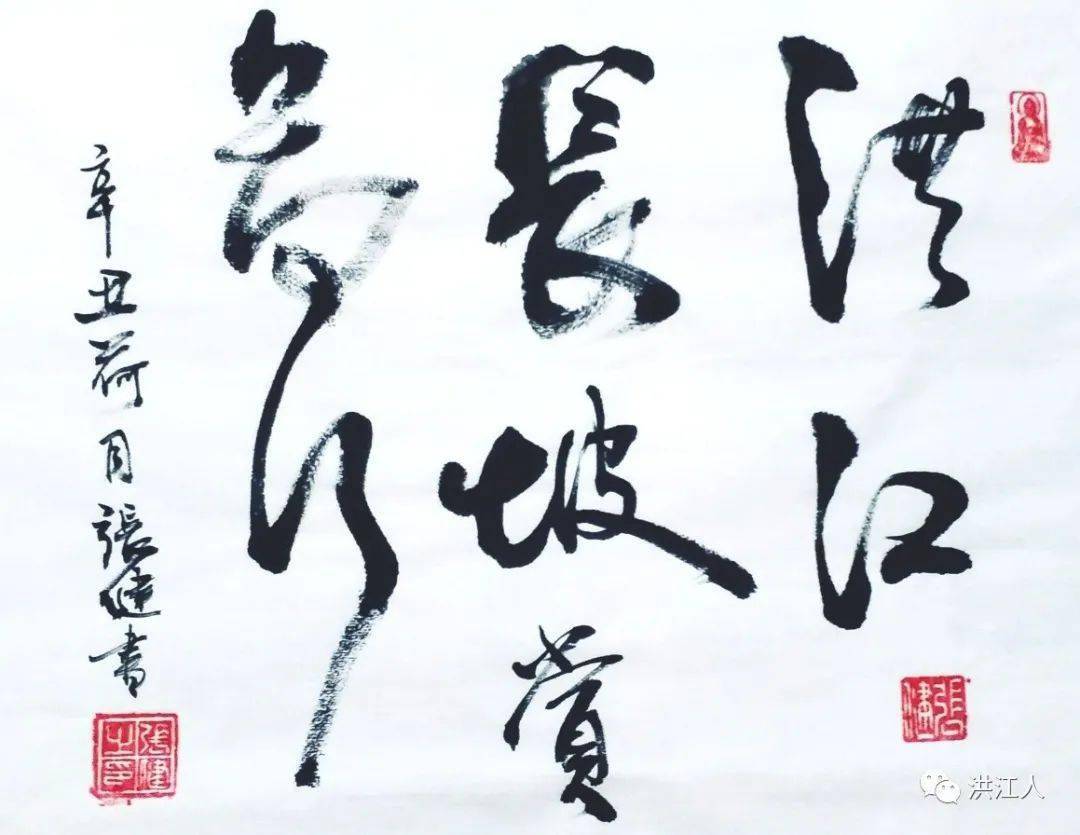 洪江
長坡賞
行
辛丑荷月張健書
張健
張健之印
洪江人